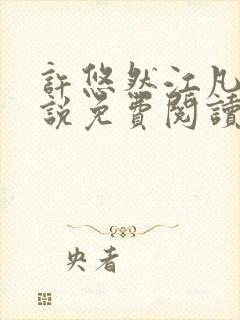 許悠然江凡
說免費閱讀
央者